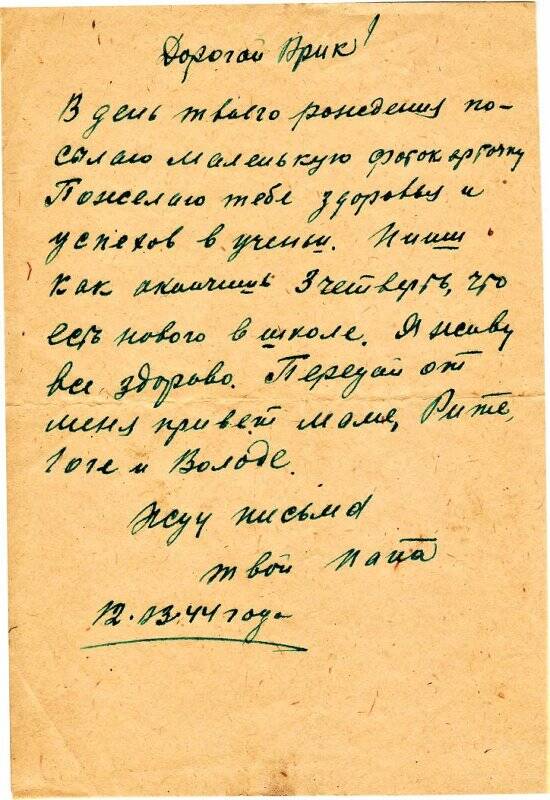 Дорогой Ярик!
В день твоего рождения по-
сылаю маленькую фотокарточку
Пожелаю тебе здоровья и
успехов в ученьи. Пиши
как окончишь 3 четверть, что
есть нового в школе. Я живу
все здорово. Передай от
меня привет маме, Рите,
Гоге и Володе.
Жду письма
твой папа
12.13.44 года